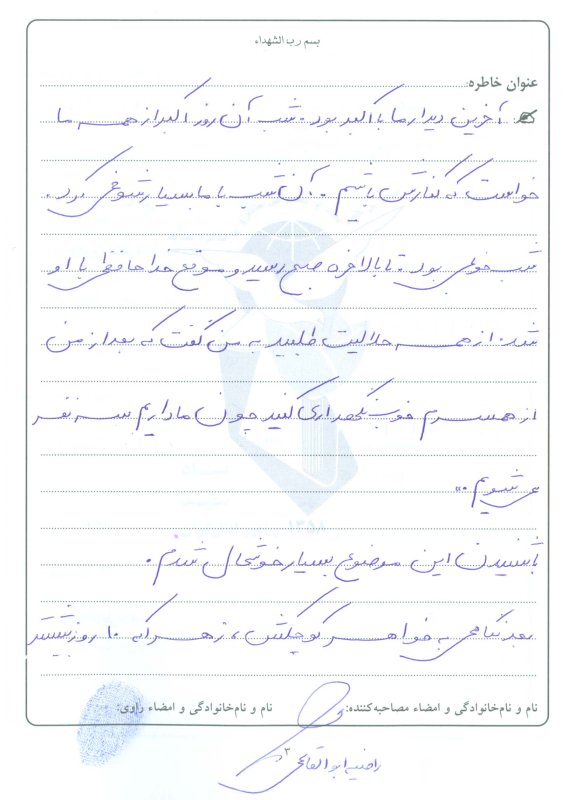 بسم رب الشهداء
عنوان خاطره:
آخرین دیدار ما با اکبر بود. شب آن روز اکبر از همه ما
خواست که کنارش باشیم. آن شب با ما بسیار شوخی کرد.
شب خوبی بود. تا بالاخره صبح رسید و موقع خداحافظی با او
شد. از همه حلالیت طلبید به من گفت که بعد از من
از همسرم خوب نگهداری کنید چون ما داریم سه نفر
می شویم.»
با شنیدن این موضوع بسیار خوشحال شدم.
بعد نگاهی به خواهر کوچکش، زهرا که ۱۰ روز بیشتر
نام و نام‌خانوادگی و امضاء مصاحبه‌کننده:
نام و نام‌خانوادگی و امضاء راوی:
۳
راضیه ابوالقاسمی